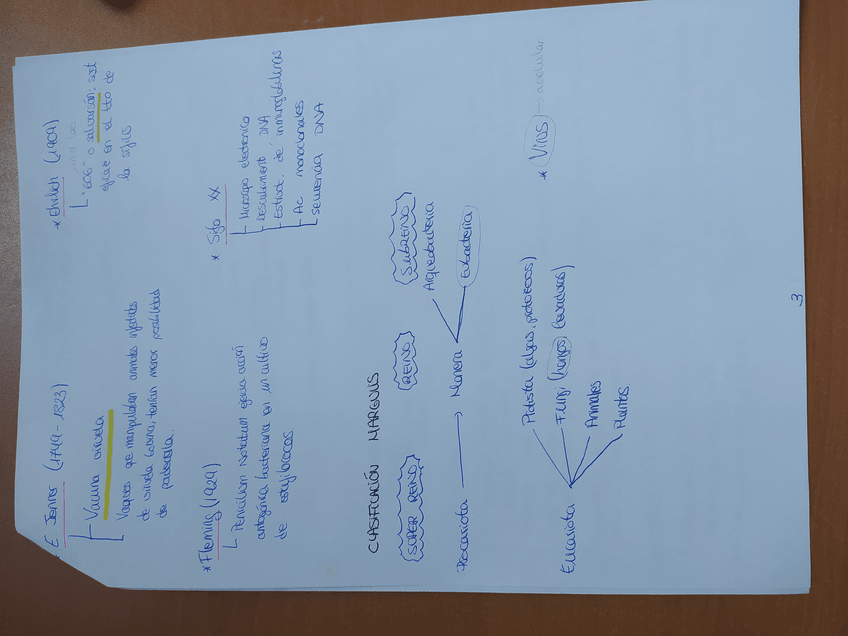 * E Jenner (1749-1823)
Vacuna viruela
Vaqueros que manipulaban animales infectados
de viruela bovina, tenían menor posibilidad
de padecerla.
* Ehrlich (1909)
"606" o salvarsán; sust
eficaz en el tto de
la sífilis
* Fleming (1929)
Penicillium Notatum ejercía acción
antagónica bacteriana en un cultivo
de estafilococos.
* Siglo XX
Microscopio electrónico
Descubrimiento DNA
Estruct. de inmunoglobulinas
Ac monoclonales
Secuencia DNA
CLASIFICACIÓN MARGULIS
SUPER REINO
REINO
SUBREINO
Procariota
Monera
Arqueobacteria
Eubacteria
Eucariota
Protista (algas, protozoos)
Fungi (hongos) (levaduras)
Animales
Plantas
* Virus - acelular
3